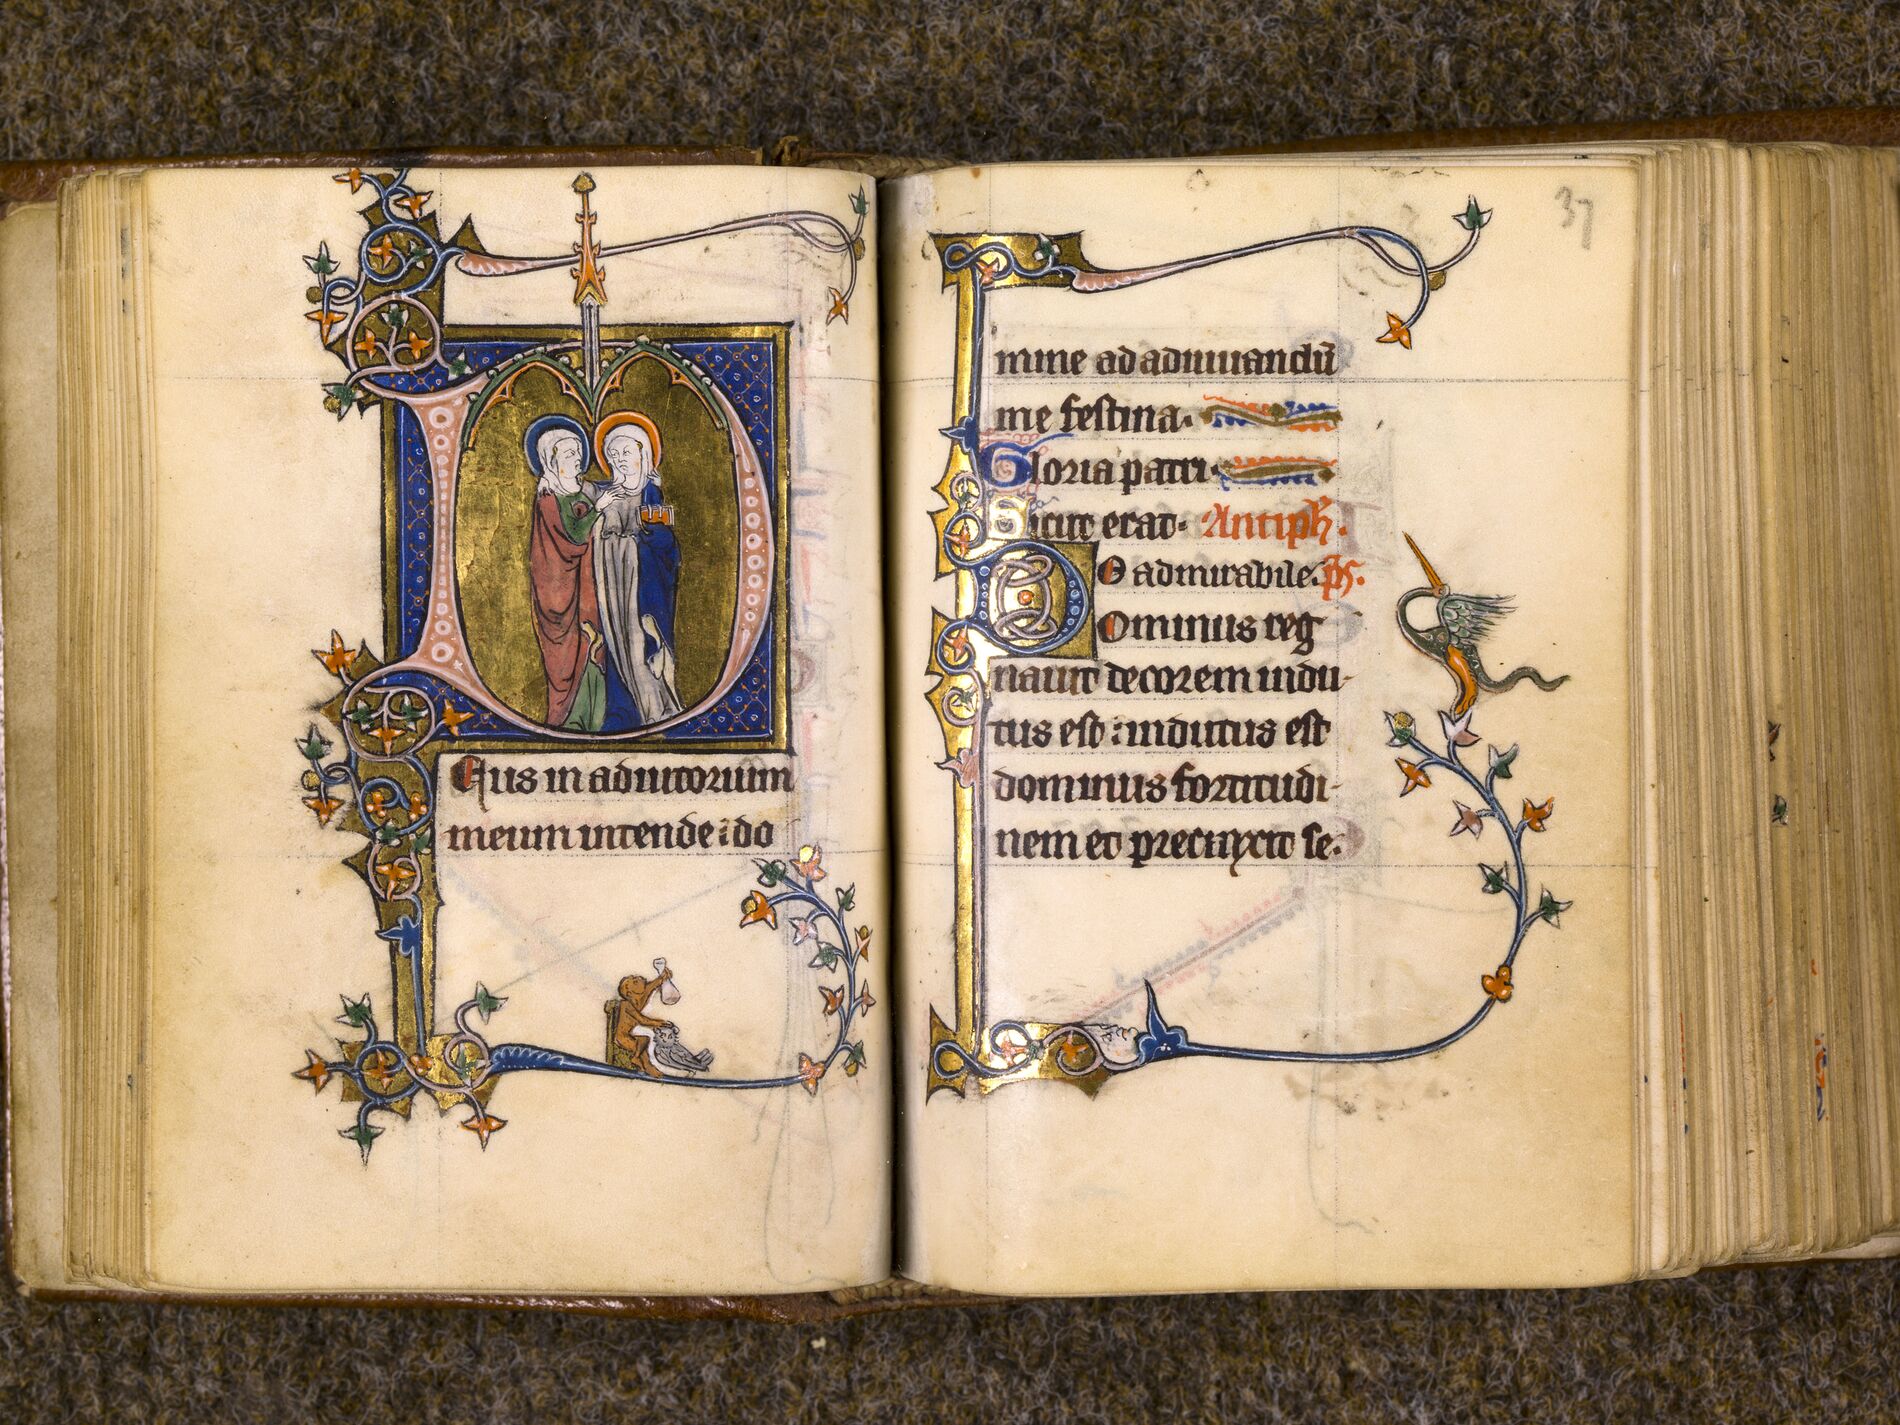 Deus in adiutorium
meum intende : do
37
mine ad adiuuandū
me festina.
Gloria patri.
Sicut erat. Antiph.
O admirabile. ps.
Dominus reg
nauit decorem indu-
tus est : indutus est
dominus fortitudi-
nem et precinxit se.